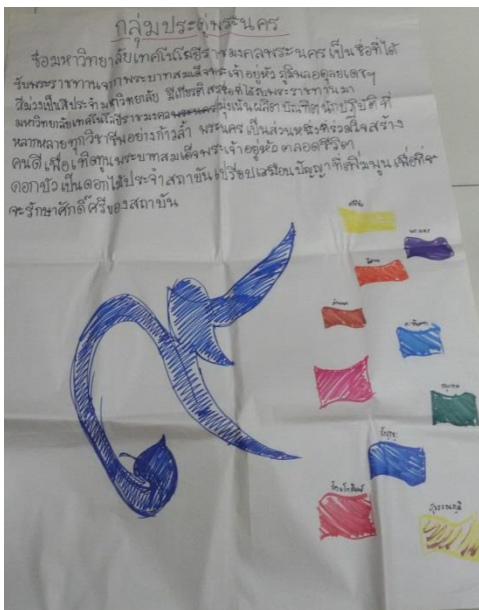 กลุ่มประตูพระนคร
ชื่อมหาวิทยาลัยเทคโนโลยีราชมงคลพระนครเป็นชื่อที่ได้
รับพระราชทานจากพระบาทสมเด็จพระเจ้าอยู่หัว ภูมิพลอดุลยเดชฯ
สีม่วงเป็นสีประจำมหาวิทยาลัย มีเกียรติสรชื่อที่ได้รับพระราชทานมา
มหาวิทยาลัยเทคโนโลยีราชมงคลพระนครมุ่งเน้นผลิตบัณฑิตนักปฏิบัติที่
หลากหลายทุกวิชาชีพอย่างก้าวล้ำ พระนครเป็นส่วนหนึ่งที่ร่วมใจสร้าง
คนดีเพื่อเทิดทูนพระบาทสมเด็จพระเจ้าอยู่หัว ตลอดชีวิตา
ดอกบัวเป็นดอกไม้ประจำสถาบันเปรียบเสมือนปัญญาที่เพิ่มพูน เพื่อที่จะ
จะรักษาศักดิ์ศรีของสถาบัน
ศรีวิชัย
พระนคร
อีสาน
ล้านนา
ตะวันออก
กรุงเทพ
ธัญบุรี
รัตนโกสินทร์
สุวรรณภูมิ